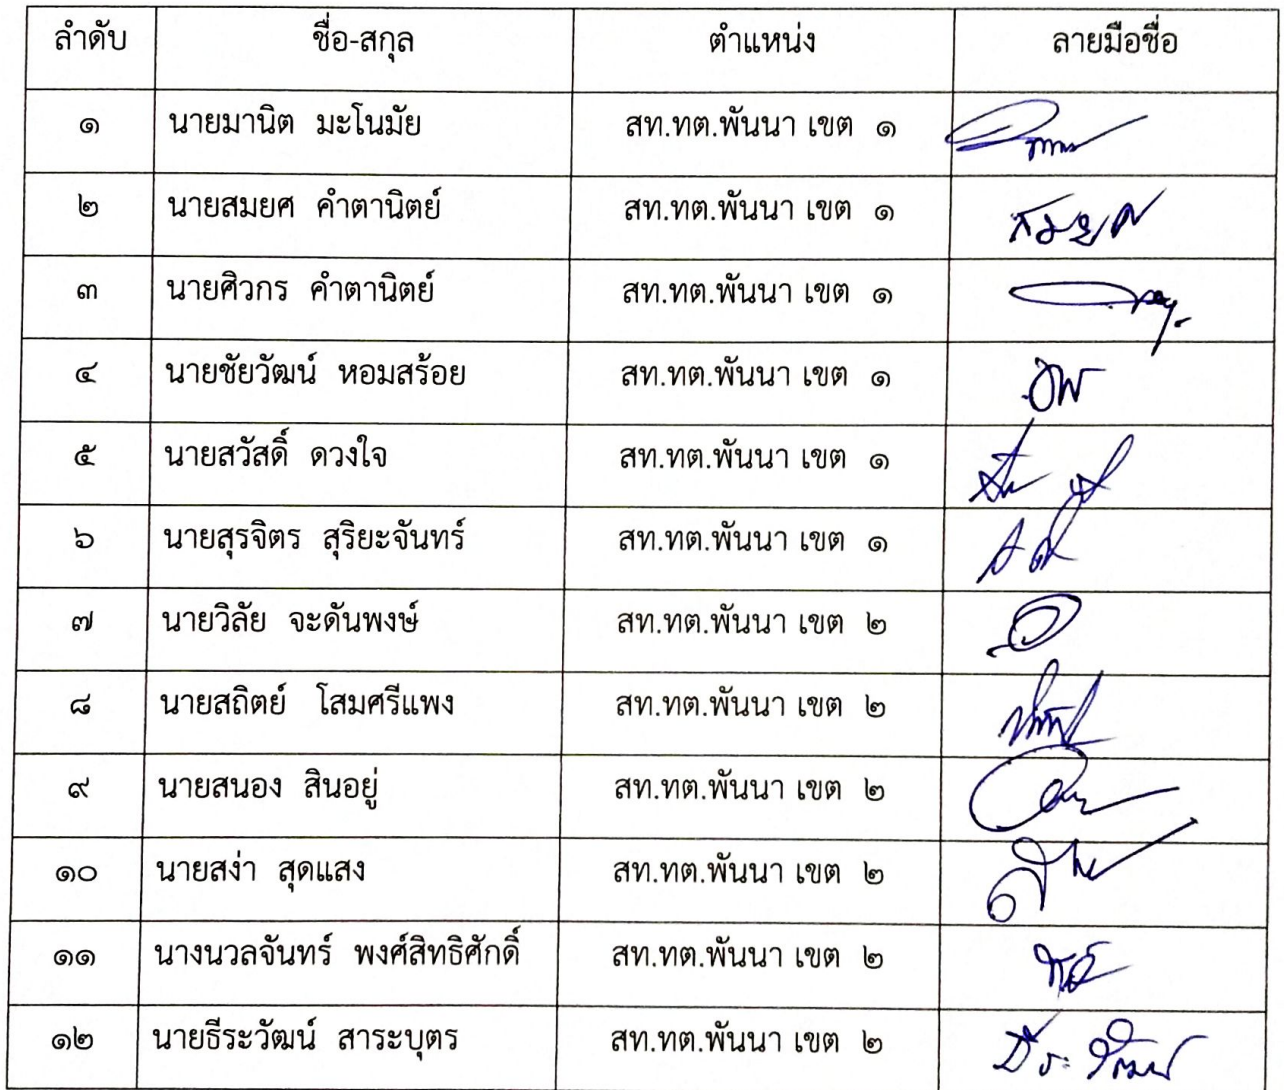 ลำดับ ชื่อ-สกุล ตำแหน่ง ลายมือชื่อ
๑ นายมานิต มะโนมัย สท.ทต.พันนา เขต ๑
๒ นายสมยศ คำตานิตย์ สท.ทต.พันนา เขต ๑ สมยศ
๓ นายศิวกร คำตานิตย์ สท.ทต.พันนา เขต ๑
๔ นายชัยวัฒน์ หอมสร้อย สท.ทต.พันนา เขต ๑
๕ นายสวัสดิ์ ดวงใจ สท.ทต.พันนา เขต ๑
๖ นายสุรจิตร สุริยะจันทร์ สท.ทต.พันนา เขต ๑
๗ นายวิลัย จะดันพงษ์ สท.ทต.พันนา เขต ๒
๘ นายสถิตย์ โสมศรีแพง สท.ทต.พันนา เขต ๒
๙ นายสนอง สินอยู่ สท.ทต.พันนา เขต ๒
๑๐ นายสง่า สุดแสง สท.ทต.พันนา เขต ๒
๑๑ นางนวลจันทร์ พงศ์สิทธิศักดิ์ สท.ทต.พันนา เขต ๒
๑๒ นายธีระวัฒน์ สาระบุตร สท.ทต.พันนา เขต ๒ ธีระวัฒน์